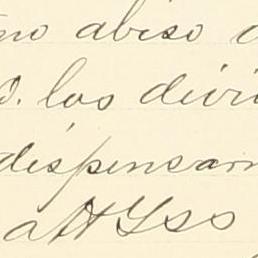 no abiso
D. los divi
dispensarm
att Yss